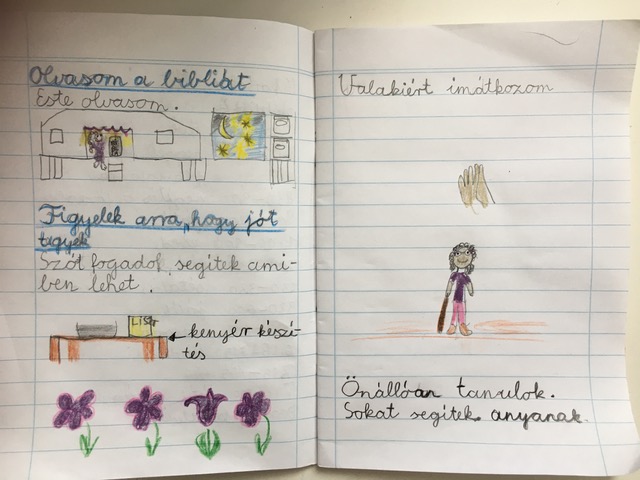 Olvasom a bibliát
Este olvasom.
Figyelek arra, hogy jót
tegyek
Szót fogadok, segítek ami-
ben lehet.
LISZT
kenyér készí-
tés
Valakiért imátkozom
Önállóan tanulok.
Sokat segítek anyának.